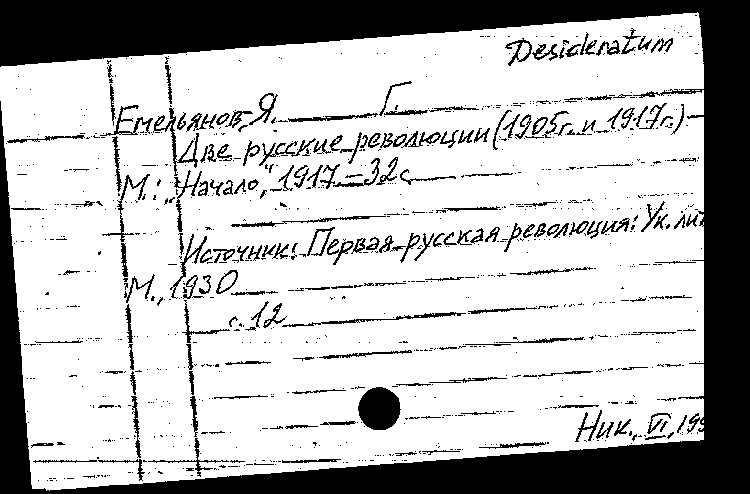 Desideratum
Емельянов, Я. Г.
Две русские революции (1905г. и 1917г.)
М.: „Начало“, 1917. – 32с.
Источник: Первая русская революция: Ук. лит
М., 1930
с. 12
Ник., VI, 199